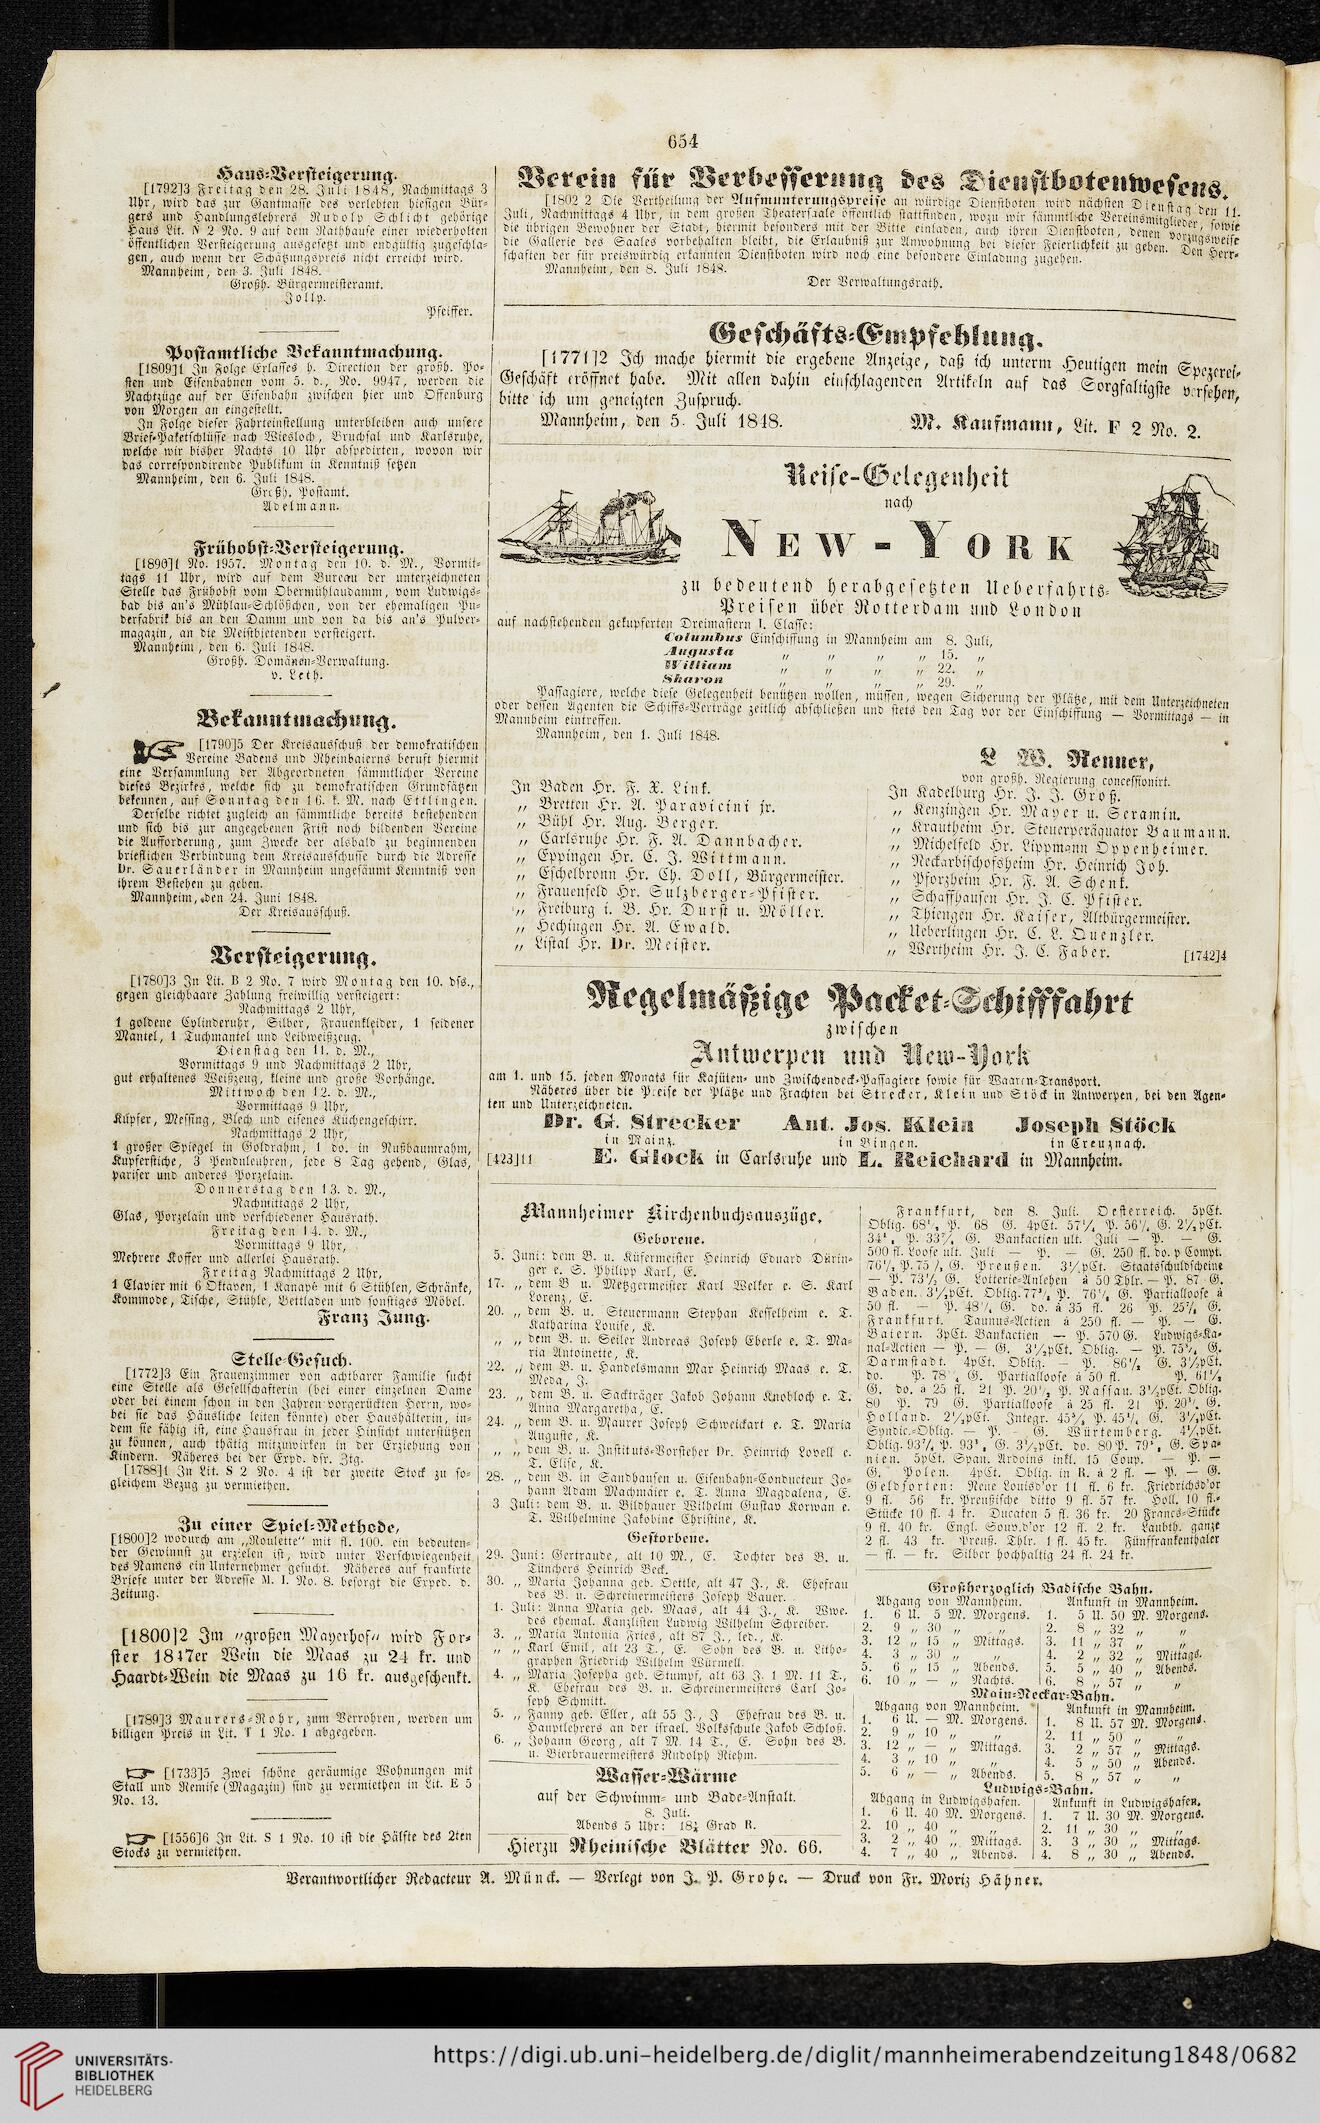 654
Haus-Versteigerung.
[1792]3 Freitag den 28. Juli 1848, Nachmittags 3
Uhr, wird das zur Gantmasse des verlebten hiesigen Bür-
gers und Handlungslehrers Rudolp Schlicht gehörige
Haus Lit. N 2 No. 9 auf dem Rathhause einer wiederholten
öffentlichen Versteigerung ausgesetzt und endgültig zugeschla-
gen, auch wenn der Schätzungspreis nicht erreicht wird.
Mannheim, den 3. Juli 1848.
Großh. Bürgermeisteramt.
Jolly.
Pfeiffer.
Postamtliche Bekanntmachung.
[1809]1 In Folge Erlasses h. Direction der großh. Po-
sten und Eisenbahnen vom 5. d., No. 9947, werden die
Nachtzüge auf der Eisenbahn zwischen hier und Offenburg
von Morgen an eingestellt.
In Folge dieser Fahrteinstellung unterbleiben auch unsere
Brief-Paketschlüsse nach Wiesloch, Bruchsal und Karlsruhe,
welche wir bisher Nachts 10 Uhr abspedirten, wovon wir
das correspondirende Publikum in Kenntniß setzen
Mannheim, den 6. Juli 1848.
Großh. Postamt.
Adelmann.
Frühobst-Versteigerung.
[1890]1 No. 1957. Montag den 10. d. M., Vormit-
tags 11 Uhr, wird auf dem Bureau der unterzeichneten
Stelle das Frühobst vom Obermühlaudamm, vom Ludwigs-
bad bis an's Mühlau-Schlößchen, von der ehemaligen Pu-
derfabrik bis an den Damm und von da bis an's Pulver-
magazin, an die Meistbietenden versteigert.
Mannheim, den 6. Juli 1848.
Großh. Domänen-Verwaltung.
v. Leth.
Bekanntmachung.
[1790]5 Der Kreisausschuß der demokratischen
Vereine Badens und Rheinbaierns beruft hiermit
eine Versammlung der Abgeordneten sämmtlicher Vereine
dieses Bezirkes, welche sich zu demokratischen Grundsätzen
bekennen, auf Sonntag den 16. k. M. nach Ettlingen.
Derselbe richtet zugleich an sämmtliche bereits bestehenden
und sich bis zur angegebenen Frist noch bildenden Vereine
die Aufforderung, zum Zwecke der alsbald zu beginnenden
brieflichen Verbindung dem Kreisausschusse durch die Adresse
Dr. Sauerländer in Mannheim ungesäumt Kenntniß von
ihrem Bestehen zu geben.
Mannheim, den 24. Juni 1848.
Der Kreisausschuß.
Versteigerung.
[1780]3 In Lit. B 2 No. 7 wird Montag den 10. dss.,
gegen gleichbaare Zahlung freiwillig versteigert:
Nachmittags 2 Uhr,
1 goldene Cylinderuhr, Silber, Frauenkleider, 1 seidener
Mantel, 1 Tuchmantel und Leibweißzeug.
Dienstag den 11. d. M.,
Vormittags 9 und Nachmittags 2 Uhr,
gut erhaltenes Weißzeug, kleine und große Vorhänge.
Mittwoch den 12. d. M.,
Vormittags 9 Uhr,
Kupfer, Messing, Blech und eisenes Küchengeschirr.
Nachmittags 2 Uhr,
1 großer Spiegel in Goldrahm, 1 do. in Nußbaumrahm,
Kupferstiche, 3 Penduleuhren, jede 8 Tag gehend, Glas,
pariser und anderes Porzelain.
Donnerstag den 13. d. M.,
Nachmittags 2 Uhr,
Glas, Porzelain und verschiedener Hausrath.
Freitag den 14. d. M.,
Vormittags 9 Uhr,
Mehrere Koffer und allerlei Hausrath.
Freitag Nachmittags 2 Uhr,
1 Clavier mit 6 Oktaven, 1 Kanapé mit 6 Stühlen, Schränke,
Kommode, Tische, Stühle, Bettladen und sonstiges Möbel.
Franz Jung.
Stelle-Gesuch.
[1772]3 Ein Frauenzimmer von achtbarer Familie sucht
eine Stelle als Gesellschafterin (bei einer einzelnen Dame
oder bei einem schon in den Jahren vorgerückten Herrn, wo-
bei sie das Häusliche leiten könnte) oder Haushälterin, in-
dem sie fähig ist, eine Hausfrau in jeder Hinsicht unterstützen
zu können, auch thätig mitzuwirken in der Erziehung von
Kindern. Näheres bei der Erpd. dsr. Ztg.
[1788]1 In Lit. S 2 No. 4 ist der zweite Stock zu so-
gleichem Bezug zu vermiethen.
Zu einer Spiel-Methode,
[1800]2 wodurch am „Roulette“ mit fl. 100. ein bedeuten-
der Gewinnst zu erzielen ist, wird unter Verschwiegenheit
des Namens ein Unternehmer gesucht. Näheres auf frankirte
Briefe unter der Adresse M. I. No. 8. besorgt die Exped. d.
Zeitung.
[1800]2 Im „großen Mayerhof“ wird For-
ster 1847er Wein die Maas zu 24 kr. und
Haardt-Wein die Maas zu 16 kr. ausgeschenkt.
[1789]3 Maurers-Rohr, zum Verrohren, werden um
billigen Preis in Lit. T 1 No. 1 abgegeben.
[1733]5 Zwei schöne geräumige Wohnungen mit
Stall und Remise (Magazin) sind zu vermiethen in Lit. E 5
No. 13.
[1556]6 In Lit. S 1 No. 10 ist die Hälfte des 2ten
Stocks zu vermiethen.
Verein für Verbesserung des Dienstbotenwesens.
[1802 2 Die Vertheilung der Aufmunterungspreise an würdige Dienstboten wird nächsten Dienstag den 11.
Juli, Nachmittags 4 Uhr, in dem großen Theatersaale öffentlich stattfinden, wozu wir sämmtliche Vereinsmitglieder, sowie
die übrigen Bewohner der Stadt, hiermit besonders mit der Bitte einladen, auch ihren Dienstboten, denen vorzugsweise
die Gallerie des Saales vorbehalten bleibt, die Erlaubniß zur Anwohnung bei dieser Feierlichkeit zu geben. Den Herr-
schaften der für preiswürdig erkannten Dienstboten wird noch eine besondere Einladung zugehen.
Mannheim, den 8. Juli 1848.
Der Verwaltungsrath.
Geschäfts-Empfehlung.
[1771]2 Ich mache hiermit die ergebene Anzeige, daß ich unterm Heutigen mein Spezerei-
Geschäft eröffnet habe. Mit allen dahin einschlagenden Artikeln auf das Sorgfaltigste versehen,
bitte ich um geneigten Zuspruch.
Mannheim, den 5. Juli 1848. M. Kaufmann, Lit. F 2 No. 2.
Reise-Gelegenheit
nach
NEW-YORK
zu bedeutend herabgesetzten Ueberfahrts-
Preisen über Rotterdam und London
auf nachstehenden gekupferten Dreimastern I. Classe:
Columbus Einschiffung in Mannheim am 8. Juli,
Augusta „ „ „ „ 15. „
William „ „ „ „ 22. „
Sharon „ „ „ „ 29. „
Passagiere, welche diese Gelegenheit benützen wollen, müssen, wegen Sicherung der Plätze, mit dem Unterzeichneten
oder dessen Agenten die Schiffs-Verträge zeitlich abschließen und stets den Tag vor der Einschiffung — Vormittags — in
Mannheim eintreffen.
Mannheim, den 1. Juli 1848.
L. W. Renner,
von großh. Regierung concessionirt.
In Baden Hr. F. X. Link.
„ Bretten Hr. A. Paravicini jr.
„ Bühl Hr. Aug. Berger.
„ Carlsruhe Hr. F. A. Dannbacher.
„ Eppingen Hr. C. J. Wittmann.
„ Eschelbronn Hr. Ch. Doll, Bürgermeister.
„ Frauenfeld Hr. Sulzberger-Pfister.
„ Freiburg i. B. Hr. Durst u. Möller.
„ Hechingen Hr. A. Ewald.
„ Listal Hr. Dr. Meister.
In Kadelburg Hr. J. J. Groß.
„ Kenzingen Hr. Mayer u. Seramin.
„ Krautheim Hr. Steuerperäquator Baumann.
„ Michelfeld Hr. Lippmann Oppenheimer.
„ Neckarbischofsheim Hr. Heinrich Joh.
„ Pforzheim Hr. F. A. Schenk.
„ Schaffhausen Hr. J. C. Pfister.
„ Thiengen Hr. Kaiser, Altbürgermeister.
„ Ueberlingen Hr. C. L. Quenzler.
„ Wertheim Hr. J. C. Faber. [1742]4
Regelmäßige Packet-Schifffahrt
zwischen
Antwerpen und New-York
am 1. und 15. jeden Monats für Kajüten- und Zwischendeck-Passagiere sowie für Waaren-Transport.
Näheres über die Preise der Plätze und Frachten bei Strecker, Klein und Stöck in Antwerpen, bei den Agen-
ten und Unterzeichneten.
Dr. G. Strecker Ant. Jos. Klein Joseph Stöck
in Mainz. in Bingen. in Creuznach.
[423]11 E. Glock in Carlsruhe und L. Reichard in Mannheim.
Mannheimer Kirchenbuchsauszüge.
Geborene.
5. Juni: dem B. u. Küfermeister Heinrich Eduard Därin-
ger e. S. Philipp Karl, E.
17. „ dem B. u. Metzgermeister Karl Welker e. S. Karl
Lorenz, E.
20. „ dem B. u. Steuermann Stephan Kesselheim e. T.
Katharina Louise, K.
„ „ dem B. u. Seiler Andreas Joseph Eberle e. T. Ma-
ria Antoinette, K.
22. „ dem B. u. Handelsmann Mar Heinrich Maas e. T.
Meda, J.
23. „ dem B. u. Sackträger Jakob Johann Knobloch e. T.
Anna Margaretha, E.
24. „ dem B. u. Maurer Joseph Schweickart e. T. Maria
Auguste, K.
„ „ dem B. u. Instituts-Vorsteher Dr. Heinrich Lovell e.
T. Elise, K.
28. „ dem B. in Sandhausen u. Eisenbahn-Conducteur Jo-
hann Adam Machmaier e. T. Anna Magdalena, E.
3 Juli: dem B. u. Bildhauer Wilhelm Gustav Korwan e.
T. Wilhelmine Jakobine Christine, K.
Gestorbene.
29. Juni: Gertraude, alt 10 M., E. Tochter des B. u.
Tünchers Heinrich Beck.
30. „ Maria Johanna geb. Oettle, alt 47 J., K. Ehefrau
des B. u. Schreinermeisters Joseph Bauer.
1. Juli: Anna Maria geb. Maas, alt 44 J., K. Wwe.
des ehemal. Kanzlisten Ludwig Wilhelm Schreiber.
3. „ Maria Antonia Fries, alt 87 J., led., K.
„ „ Karl Emil, alt 23 T., E. Sohn des B. u. Litho-
graphen Friedrich Wilhelm Würmell.
4. „ Maria Josepha geb. Stumpf, alt 63 J. 1 M. 11 T.,
K. Ehefrau des B. u. Schreinermeisters Carl Jo-
seph Schmitt.
5. „ Fanny geb. Eller, alt 55 J., J Ehefrau des B. u.
Hauptlehrers an der israel. Volksschule Jakob Schloß.
6. „ Johann Georg, alt 7 M. 14 T., E. Sohn des B.
u. Bierbrauermeisters Rudolph Riehm.
Wasser-Wärme
auf der Schwimm- und Bade-Anstalt.
8. Juli.
Abends 5 Uhr: Grad R.
Hierzu Rheinische Blätter No. 66.
Frankfurt, den 8. Juli. Oesterreich. 5pCt.
Oblig. 68 P. 68 G. 4pCt. P. G. 2½pCt.
P. G. Bankactien ult. Juli — P. — G.
500 fl. Loose ult. Juli — P. — G. 250 fl. do. p Compt.
P. 75 G. Preußen. 3½pCt. Staatsschuldscheine
— P. G. Lotterie-Anlehen à 50 Thlr. — P. 87 G.
Baden. 3½pCt. Oblig. P. G. Partialloose à
50 fl. — P. G. do. à 35 fl. 26 P. G.
Frankfurt. Taunus-Actien à 250 fl. — P. — G.
Baiern. 3pCt. Bankactien — P. 570 G. Ludwigs-Ka-
nal-Actien — P. — G. 3½pCt. Oblig. — P. G.
Darmstadt. 4pCt. Oblig. — P. G. 3½pCt.
do. P. G. Partialloose à 50 fl. P.
G. do. à 25 fl. 21 P. P. Nassau. 3½pCt. Oblig.
80 P. 79 G. Partialloose à 25 fl. 21 P. G.
Holland. 2½pCt. Integr. P. G. 3½pCt.
Syndic.-Oblig. — P. - G. Würtemberg. 4½pCt.
Oblig. P. G. 3½pCt. do. 80 P. G. Spa-
nien. 5pCt. Span. Ardoins inkl. 15 Coup. — P. —
G. Polen. 4pCt. Oblig. in R. à 2 fl. — P. — G.
Geldsorten: Neue Louisd'or 11 fl. 6 kr. Friedrichsd'or
9 fl. 56 kr. Preußische ditto 9 fl. 57 kr. Holl. 10 fl.-
Stücke 10 fl. 4 kr. Ducaten 5 fl. 36 kr. 20 Francs-Stücke
9 fl. 40 kr. Engl. Souv.d'or 12 fl. 2 kr. Laubth. ganze
2 fl. 43 kr. Preuß. Thlr. 1 fl. 45 kr. Fünffrankenthaler
— fl. — kr. Silber hochhaltig 24 fl. 24 kr.
Großherzoglich Badische Bahn.
Abgang von Mannheim. Ankunft in Mannheim.
1. 6 U. 5 M. Morgens. 1. 5 U. 50 M. Morgens.
2. 9 „ 30 „ „ 2. 8 „ 32 „ „
3. 12 „ 15 „ Mittags. 3. 11 „ 37 „ „
4. 3 „ 30 „ „ 4. 2 „ 32 „ Mittags.
5. 6 „ 15 „ Abends. 5. 5 „ 40 „ Abends.
6. 10 „ — „ Nachts. 6. 8 „ 57 „ „
Main-Neckar-Bahn.
Abgang von Mannheim. Ankunft in Mannheim.
1. 6 U. — M. Morgens. 1. 8 U. 57 M. Morgens.
2. 9 „ 10 „ „ 2. 11 „ 50 „ „
3. 12 „ — „ Mittags. 3. 2 „ 57 „ Mittags.
4. 3 „ 10 „ „ 4. 5 „ 50 „ Abends.
5. 6 „ — „ Abends. 5. 8 „ 57 „ „
Ludwigs-Bahn.
Abgang in Ludwigshafen. Ankunft in Ludwigshafen.
1. 6 U. 40 M. Morgens. 1. 7 U. 30 M. Morgens.
2. 10 „ 40 „ „ 2. 11 „ 30 „ „
3. 2 „ 40 „ Mittags. 3. 3 „ 30 „ Mittags.
4. 7 „ 40 „ Abends. 4. 8 „ 30 „ Abends.
Verantwortlicher Redacteur A. Münck. — Verlegt von J. P. Grohe. — Druck von Fr. Moriz Hähner.
UNIVERSITÄTS-
BIBLIOTHEK
HEIDELBERG
https://digi.ub.uni-heidelberg.de/diglit/mannheimerabendzeitung1848/0682